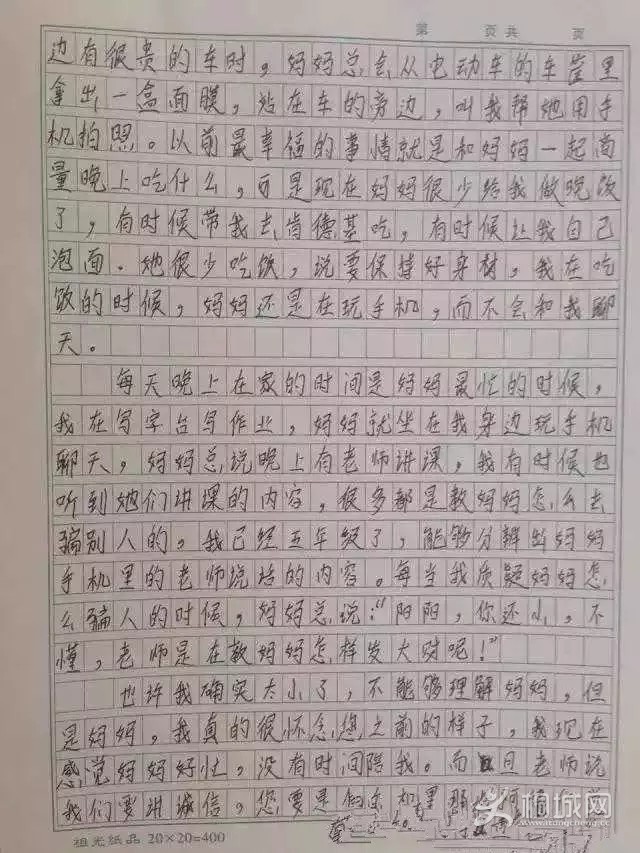 第 页共 页
边有很贵的车时，妈妈总会从电动车的车筐里
拿出一盒面膜，站在车的旁边，叫我帮她用手
机拍照。以前最幸福的事情就是和妈妈一起商
量晚上吃什么，可是现在妈妈很少给我做晚饭
了，有时候带我去肯德基吃，有时候让我自己
泡面。她很少吃饭，说要保持好身材，我在吃
饭的时候，妈妈还是在玩手机，而不会和我聊
天。
每天晚上在家的时间是妈妈最忙的时候，
我在写字台写作业，妈妈就坐在我身边玩手机
聊天，妈妈总说晚上有老师讲课，我有时候也
听到她们讲课的内容，很多都是教妈妈怎么去
骗别人的，我已经五年级了，能够分辨出妈妈
手机里的老师说话的内容。每当我质疑妈妈怎
么骗人的时候，妈妈总说：“阳阳，你还小，不
懂，老师是在教妈妈怎样发大财呢！”
也许我确实太小了，不能够理解妈妈，但
是妈妈，我真的很怀念您之前的样子，我现在
感觉妈妈好忙，没有时间陪我。而且老师说
我们要讲诚信，您要是
祖光纸品 20×20=400
桐城网
www.itongcheng.cc